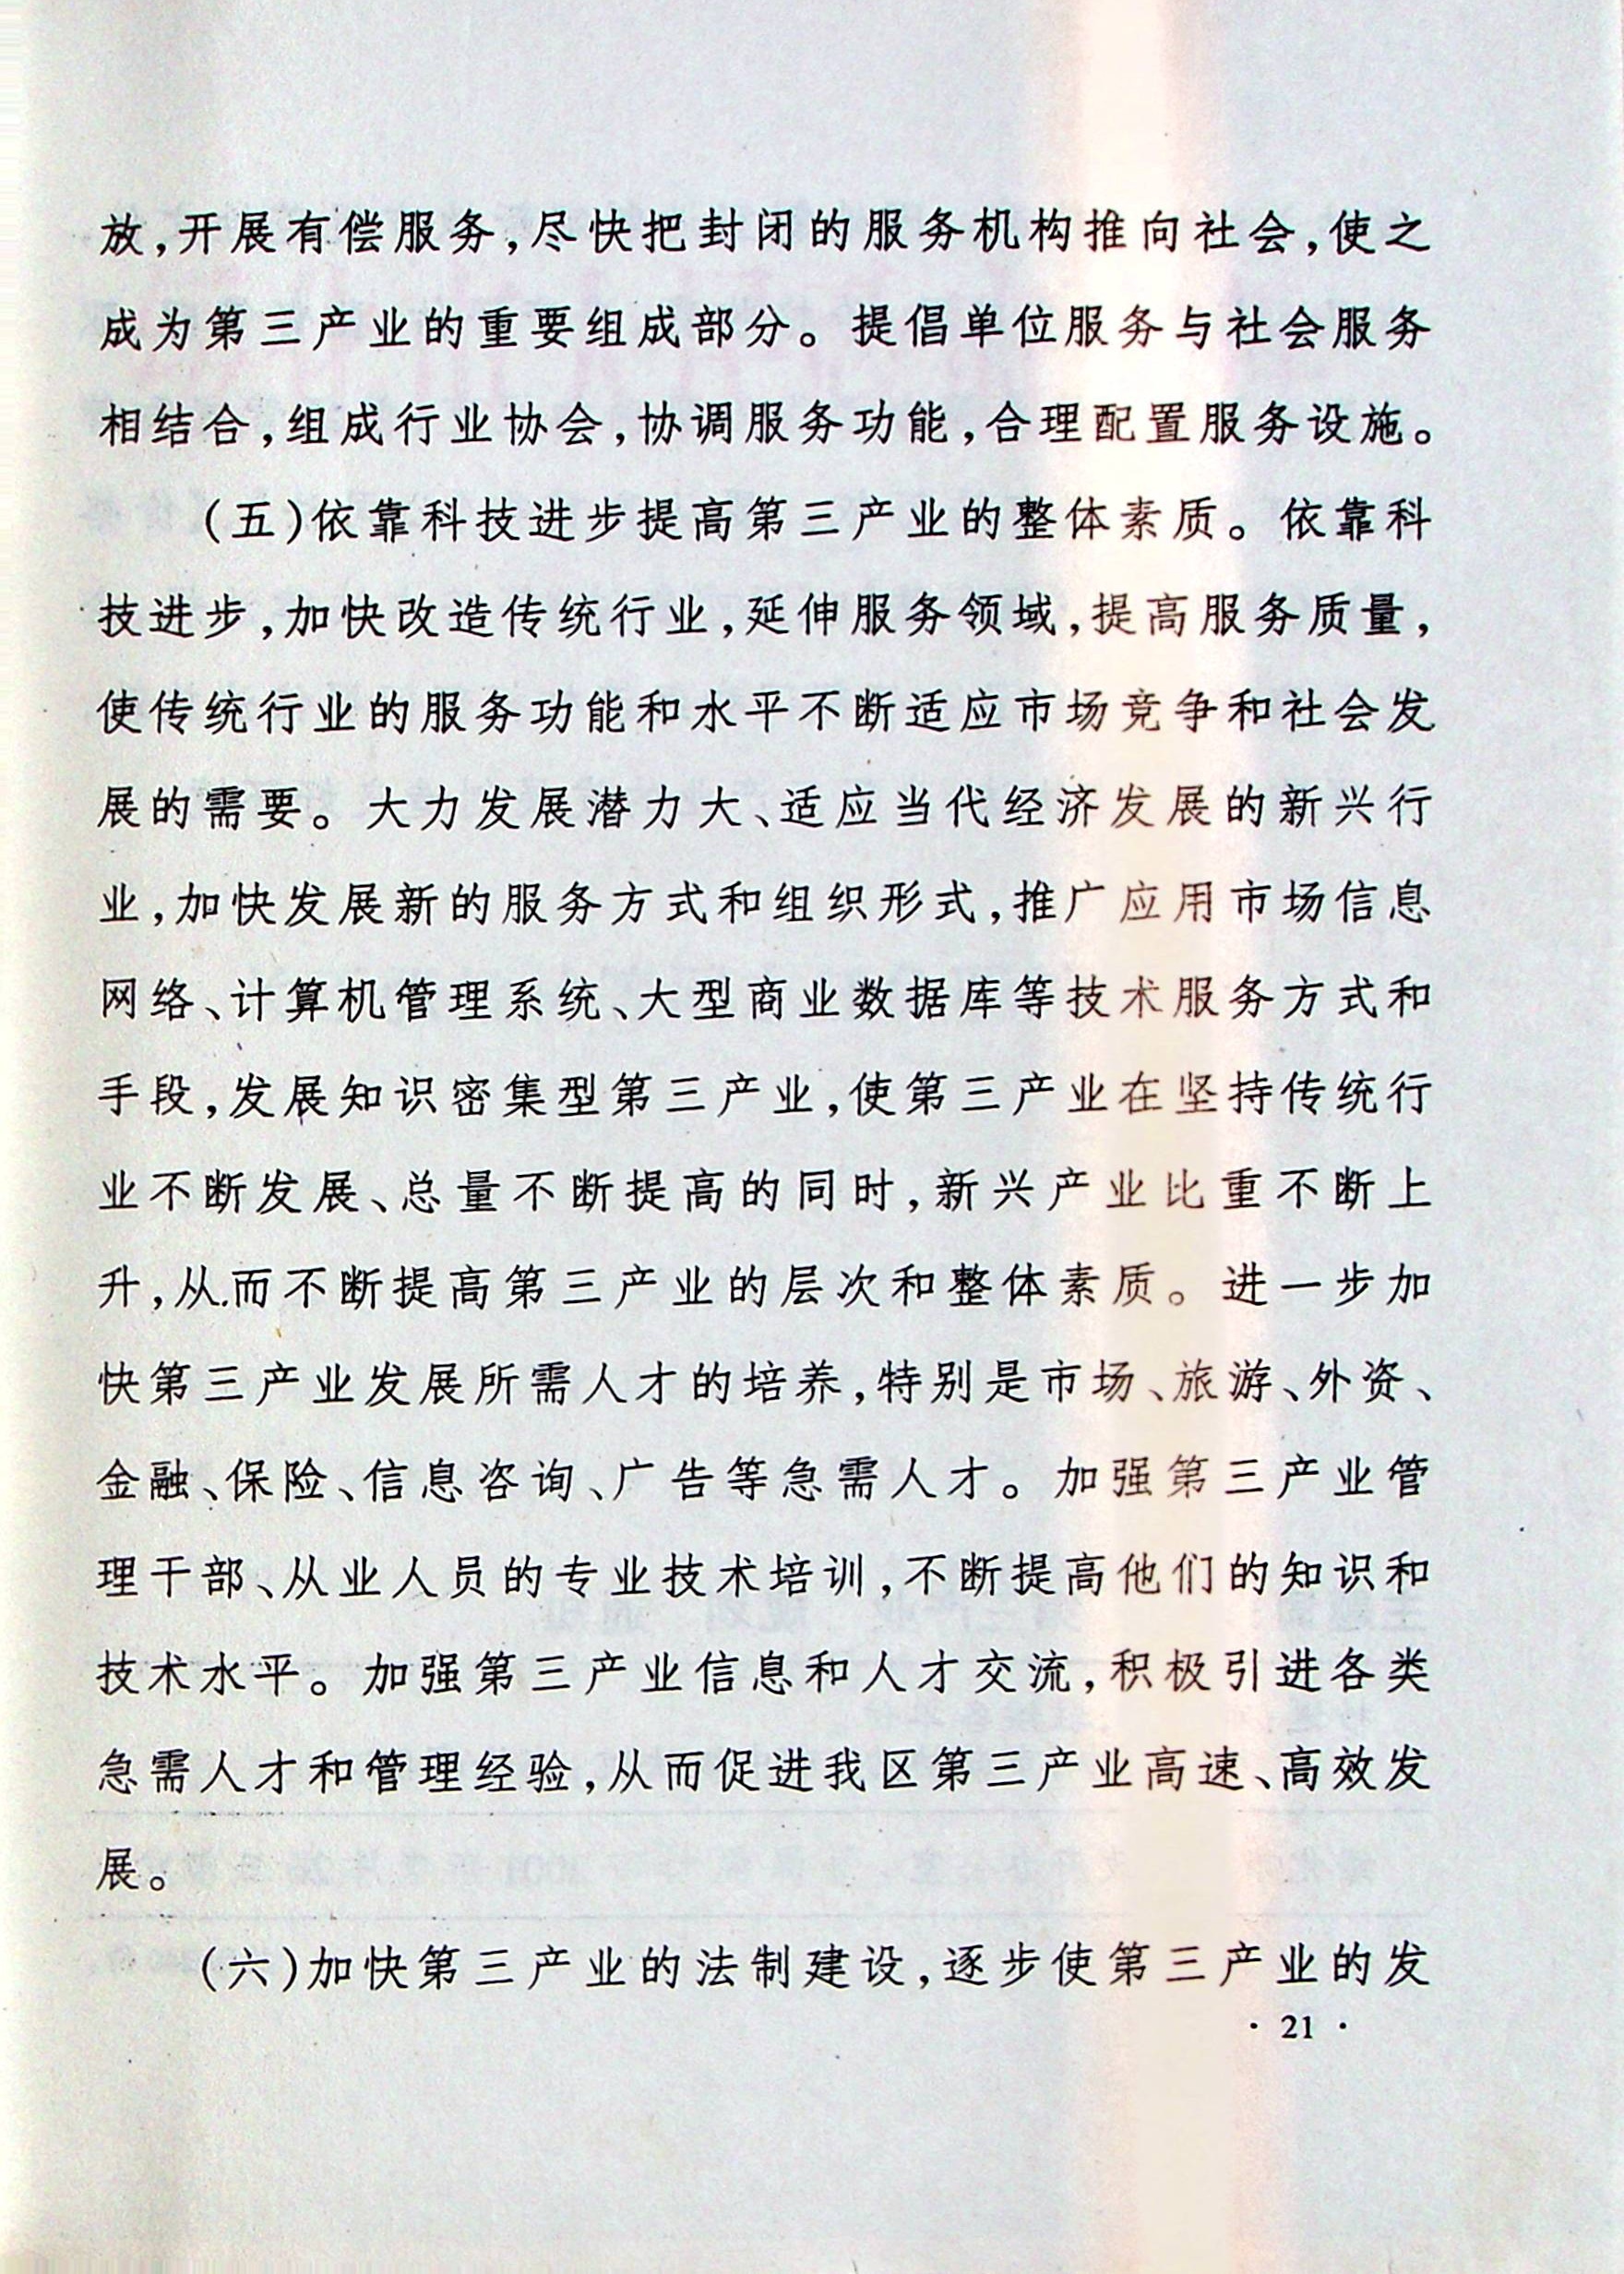 放,开展有偿服务,尽快把封闭的服务机构推向社会,使之
成为第三产业的重要组成部分。提倡单位服务与社会服务
相结合,组成行业协会,协调服务功能,合理配置服务设施。
(五)依靠科技进步提高第三产业的整体素质。依靠科
技进步,加快改造传统行业,延伸服务领域,提高服务质量,
使传统行业的服务功能和水平不断适应市场竞争和社会发
展的需要。大力发展潜力大、适应当代经济发展的新兴行
业,加快发展新的服务方式和组织形式,推广应用市场信息
网络、计算机管理系统、大型商业数据库等技术服务方式和
手段,发展知识密集型第三产业,使第三产业在坚持传统行
业不断发展、总量不断提高的同时,新兴产业比重不断上
升,从而不断提高第三产业的层次和整体素质。进一步加
快第三产业发展所需人才的培养,特别是市场、旅游、外资、
金融、保险、信息咨询、广告等急需人才。加强第三产业管
理干部、从业人员的专业技术培训,不断提高他们的知识和
技术水平。加强第三产业信息和人才交流,积极引进各类
急需人才和管理经验,从而促进我区第三产业高速、高效发
展。
(六)加快第三产业的法制建设,逐步使第三产业的发
· 21 ·